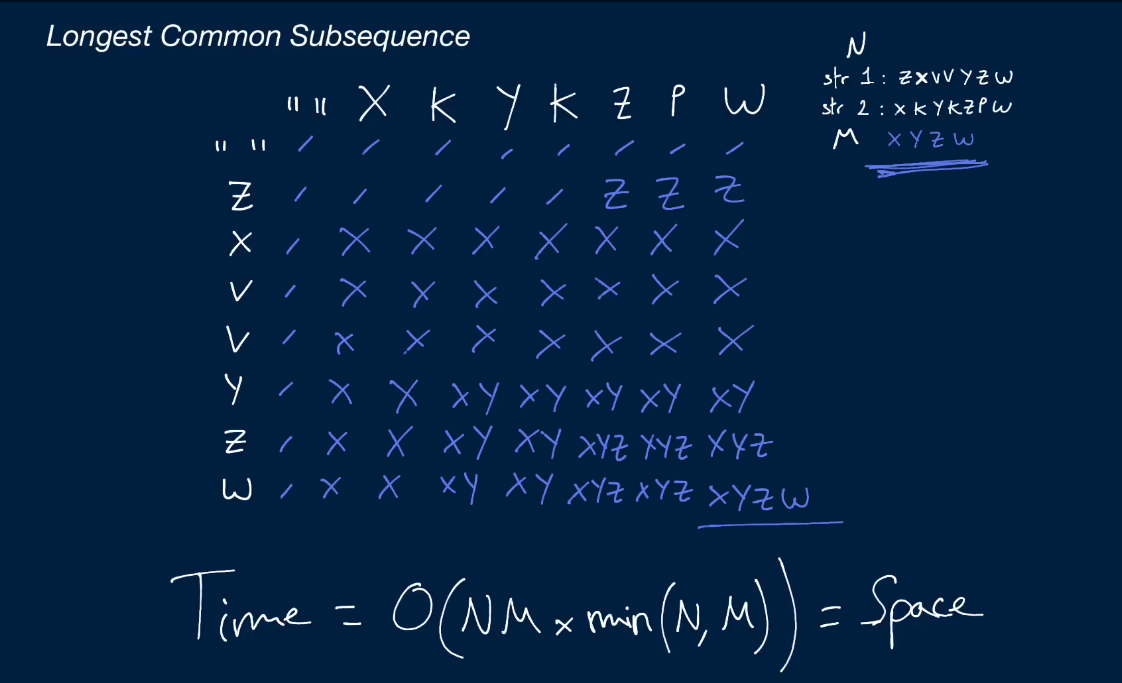 Longest Common Subsequence
N
str 1 : ZXVVYZW
str 2 : XKYKZPW
M XYZW
" " X K Y K Z P W
" " / / / / / / / /
Z / / / / / Z Z Z
X / X X X X X X X
V / X X X X X X X
V / X X X X X X X
Y / X X XY XY XY XY XY
Z / X X XY XY XYZ XYZ XYZ
W / X X XY XY XYZ XYZ XYZW
Time = O(NM x min(N, M)) = Space